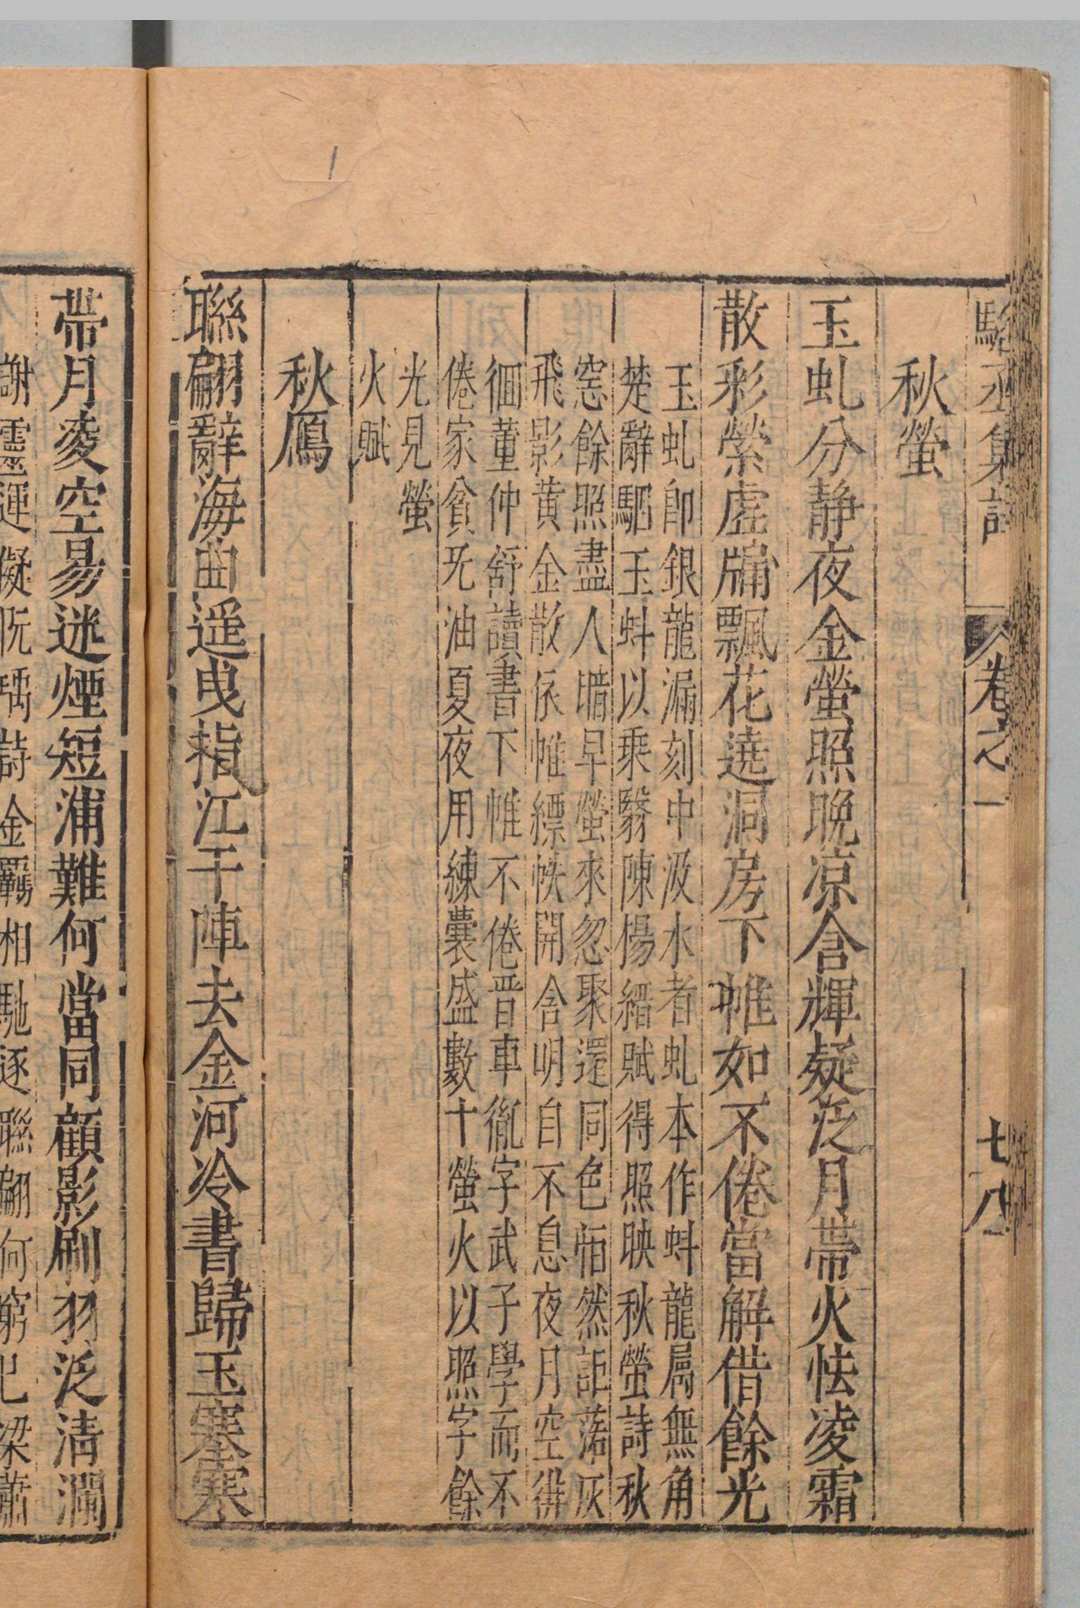 駱丞集註 卷之一
秋螢
玉虬分静夜金螢照晚凉含輝疑泛月帶火怯凌霜
散彩縈虛牖飄花遶洞房下帷如不倦當解借餘光
玉虬卽銀龍漏刻中汲水者虬本作虯龍屬無角
楚辭駟玉虯以乘鷖陳楊縉賦得照映秋螢詩秋
窓餘照盡人暗早螢來忽聚還同色怕然詎落灰
飛影黄金散依帷縹帙開含明自不息夜月空徘
徊董仲舒讀書下帷不倦晋車胤字武子學而不
倦家貧无油夏夜用練囊盛數十螢火以照字餘
光見螢
火賦
秋鴈
聯翩辭海曲遥曳指江干陣去金河冷書歸玉塞寒
帶月凌空易迷煙短浦難何當同顧影刷羽泛清瀾
謝靈運擬阮瑀詩金羈相馳逐聯翩何窮已梁蕭